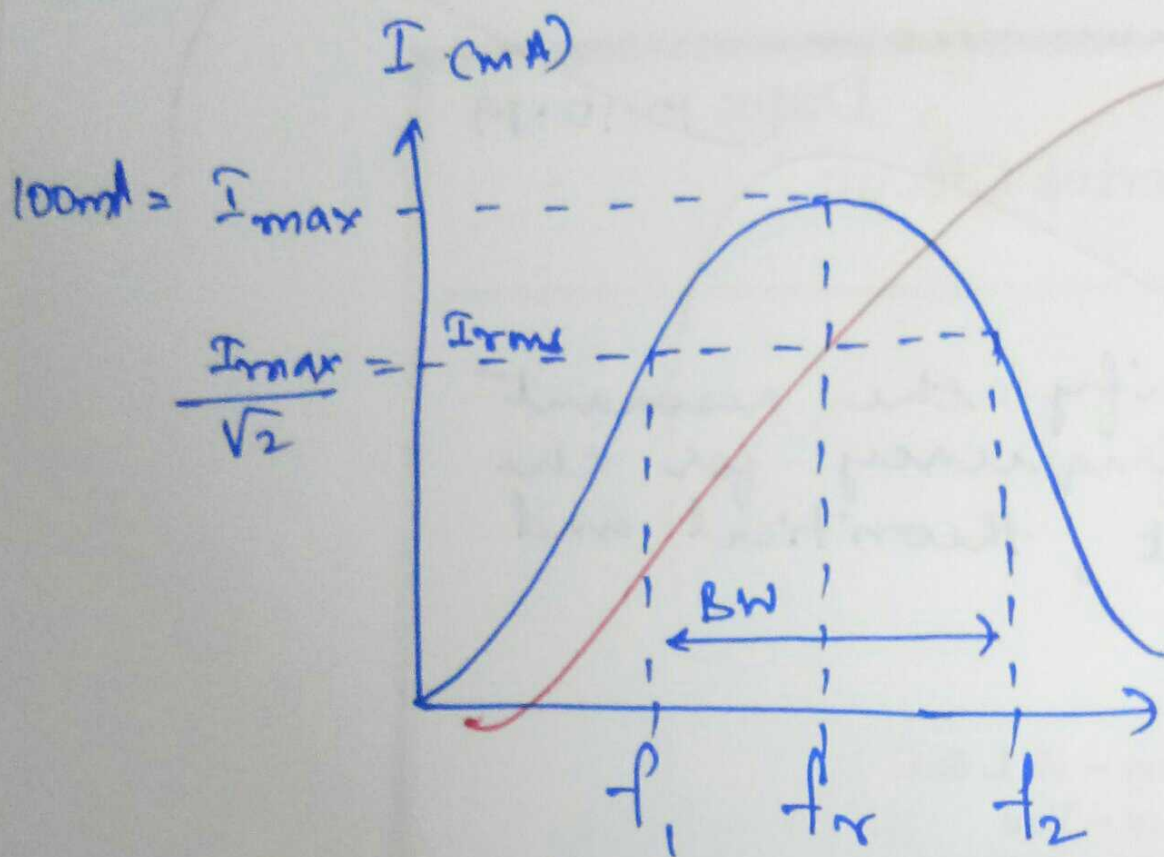 I (mA)
100mA = Imax
Imax/√2 = Irms
BW
f1 fr f2